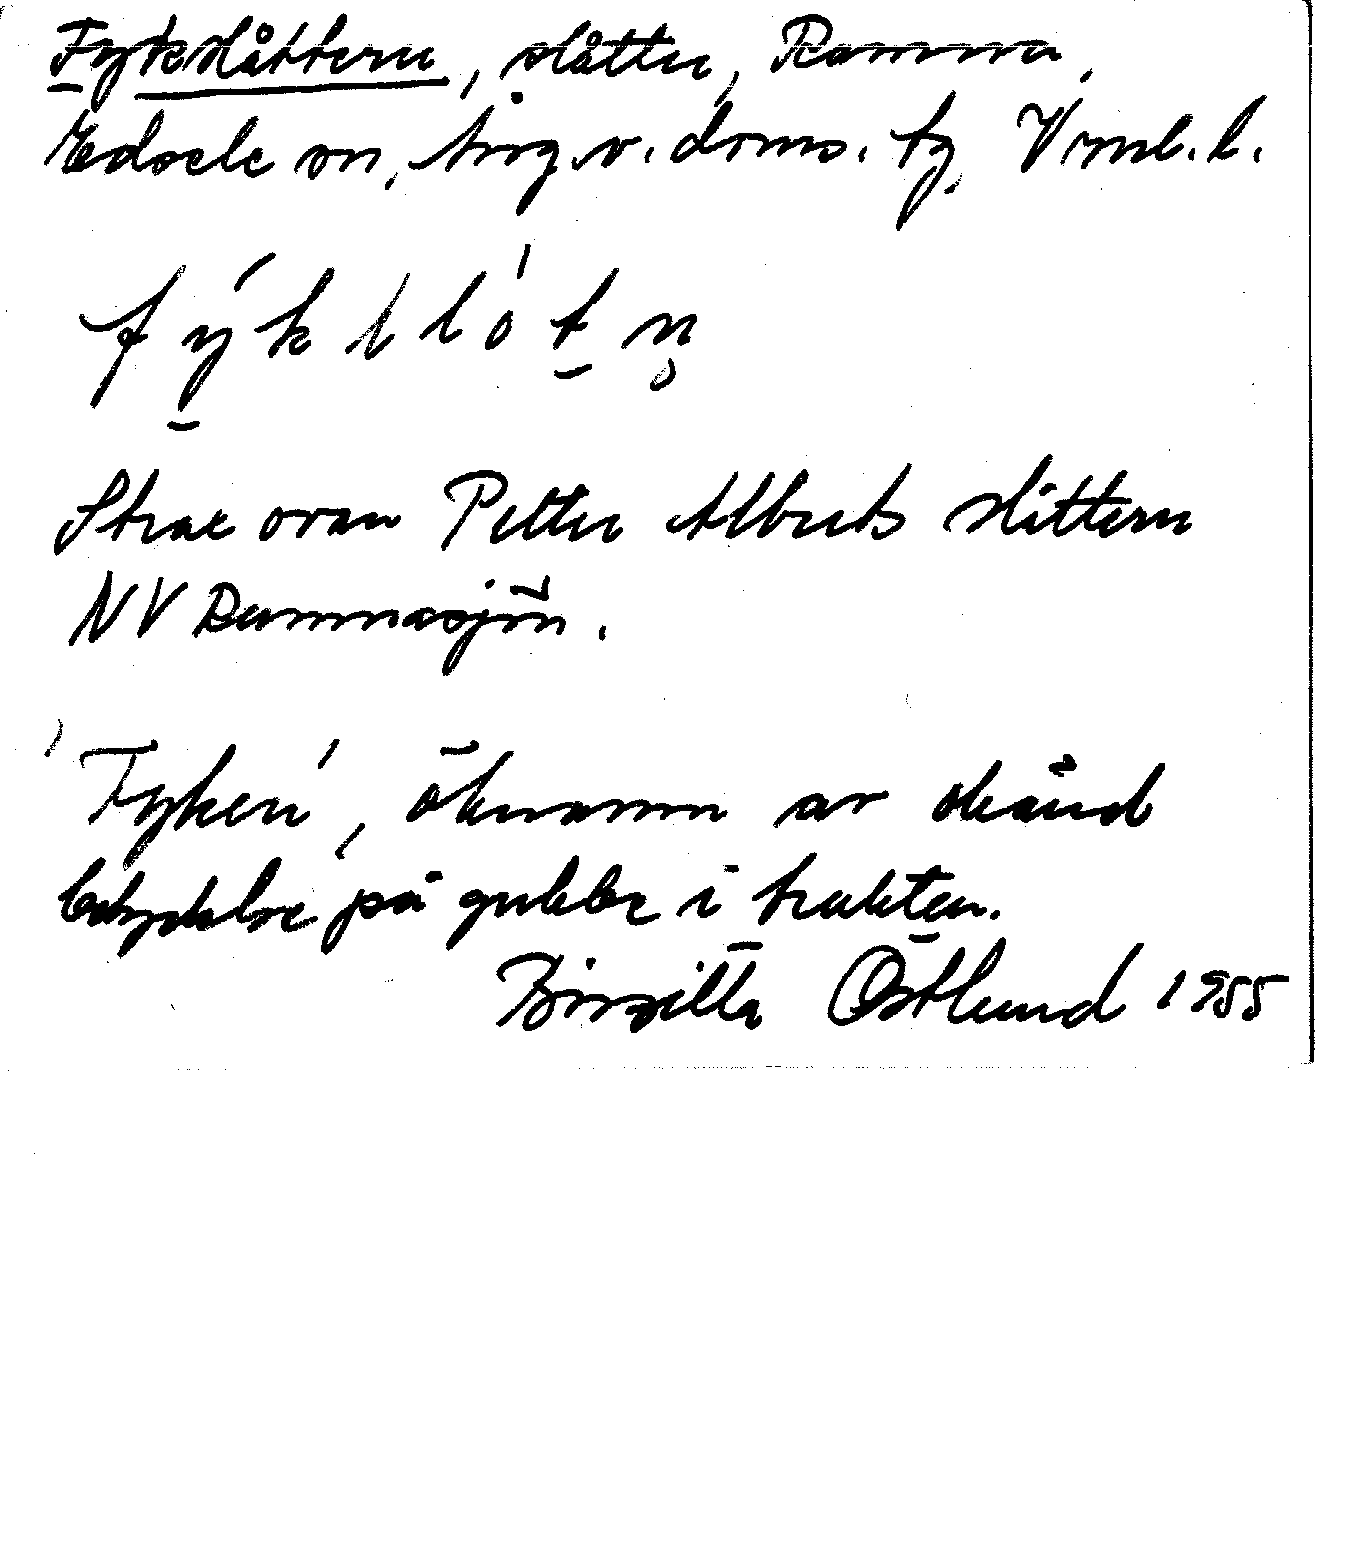 Fykslåttern, slåtter, Ramma,
Edsele sn, Ång.v. doms. fg, Vrml. l.
fýklló́tn̥
Strax ovan Petter Alberts slåttern
NV Dammasjön.
'Fyken', öknamn av okänd
betydelse på gubbe i trakten.
Birgitta Östlund 1955